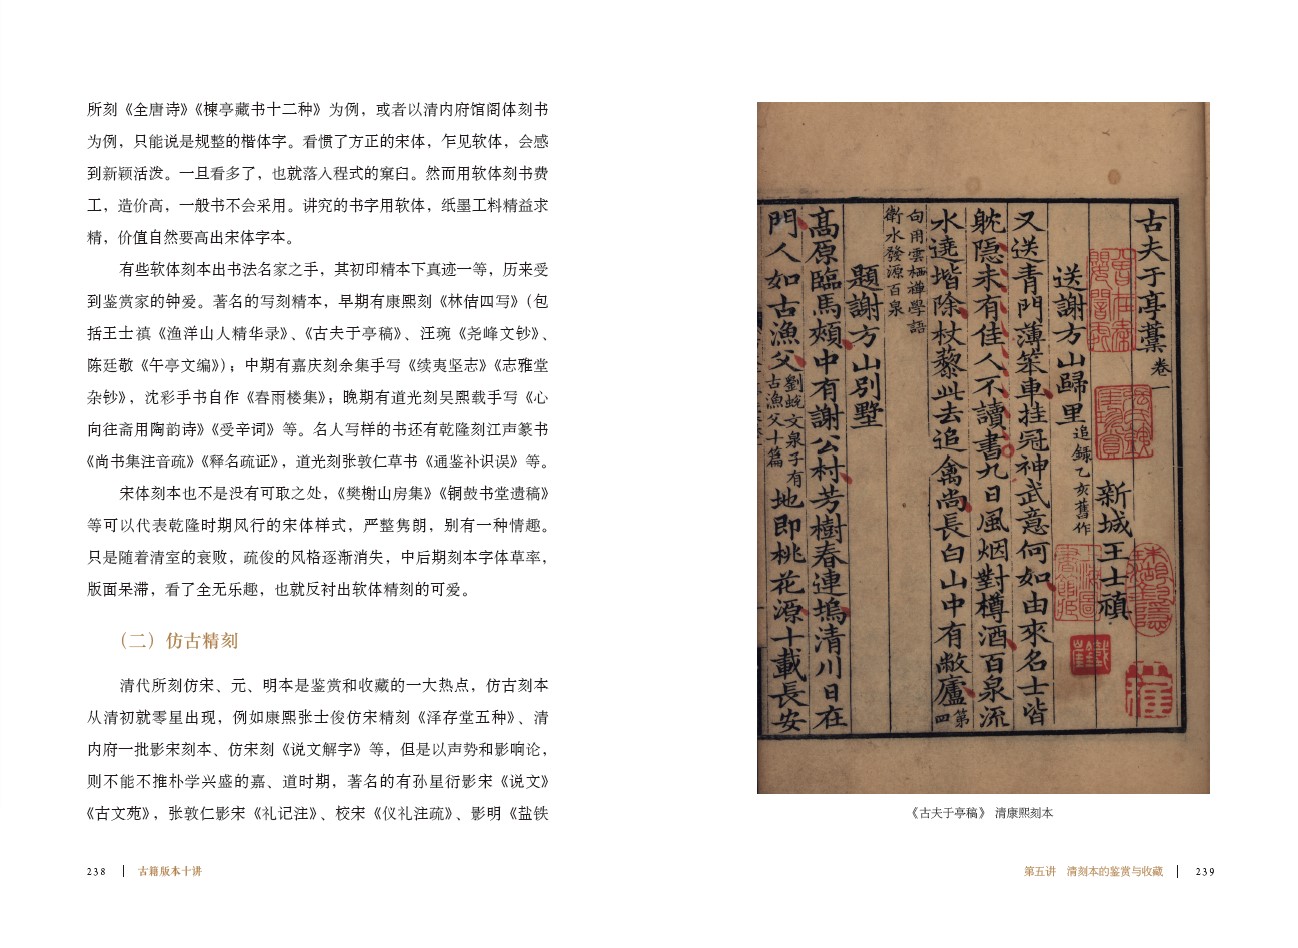 所刻《全唐诗》《楝亭藏书十二种》为例，或者以清内府馆阁体刻书
为例，只能说是规整的楷体字。看惯了方正的宋体，乍见软体，会感
到新颖活泼。一旦看多了，也就落入程式的窠臼。然而用软体刻书费
工，造价高，一般书不会采用。讲究的书字用软体，纸墨工料精益求
精，价值自然要高出宋体字本。
有些软体刻本出书法名家之手，其初印精本下真迹一等，历来受
到鉴赏家的钟爱。著名的写刻精本，早期有康熙刻《林佶四写》（包
括王士禛《渔洋山人精华录》、《古夫于亭稿》、汪琬《尧峰文钞》、
陈廷敬《午亭文编》）；中期有嘉庆刻余集手写《续夷坚志》《志雅堂
杂钞》，沈彩手书自作《春雨楼集》；晚期有道光刻吴熙载手写《心
向往斋用陶韵诗》《受辛词》等。名人写样的书还有乾隆刻江声篆书
《尚书集注音疏》《释名疏证》，道光刻张敦仁草书《通鉴补识误》等。
宋体刻本也不是没有可取之处，《樊榭山房集》《铜鼓书堂遗稿》
等可以代表乾隆时期风行的宋体样式，严整隽朗，别有一种情趣。
只是随着清室的衰败，疏俊的风格逐渐消失，中后期刻本字体草率，
版面呆滞，看了全无乐趣，也就反衬出软体精刻的可爱。
（二）仿古精刻
清代所刻仿宋、元、明本是鉴赏和收藏的一大热点，仿古刻本
从清初就零星出现，例如康熙张士俊仿宋精刻《泽存堂五种》、清
内府一批影宋刻本、仿宋刻《说文解字》等，但是以声势和影响论，
则不能不推朴学兴盛的嘉、道时期，著名的有孙星衍影宋《说文》
《古文苑》，张敦仁影宋《礼记注》、校宋《仪礼注疏》、影明《盐铁
238 | 古籍版本十讲
古夫于亭藳卷一
新城王士禛
送謝方山歸里追錄乙亥舊作
又送青門薄笨車挂冠神武意何如由來名士皆
躭隱未有佳人不讀書九日風烟對樽酒百泉流
水遶堦除杖藜此去追禽尚長白山中有敝廬第四
句用雲栖禪學語
衛水發源百泉
題謝方山別墅
高原臨馬頰中有謝公村芳樹春連塢清川日在
門人如古漁父劉蛻文泉子有古漁父十篇地即桃花源十載長安
《古夫于亭稿》 清康熙刻本
第五讲 清刻本的鉴赏与收藏 | 239